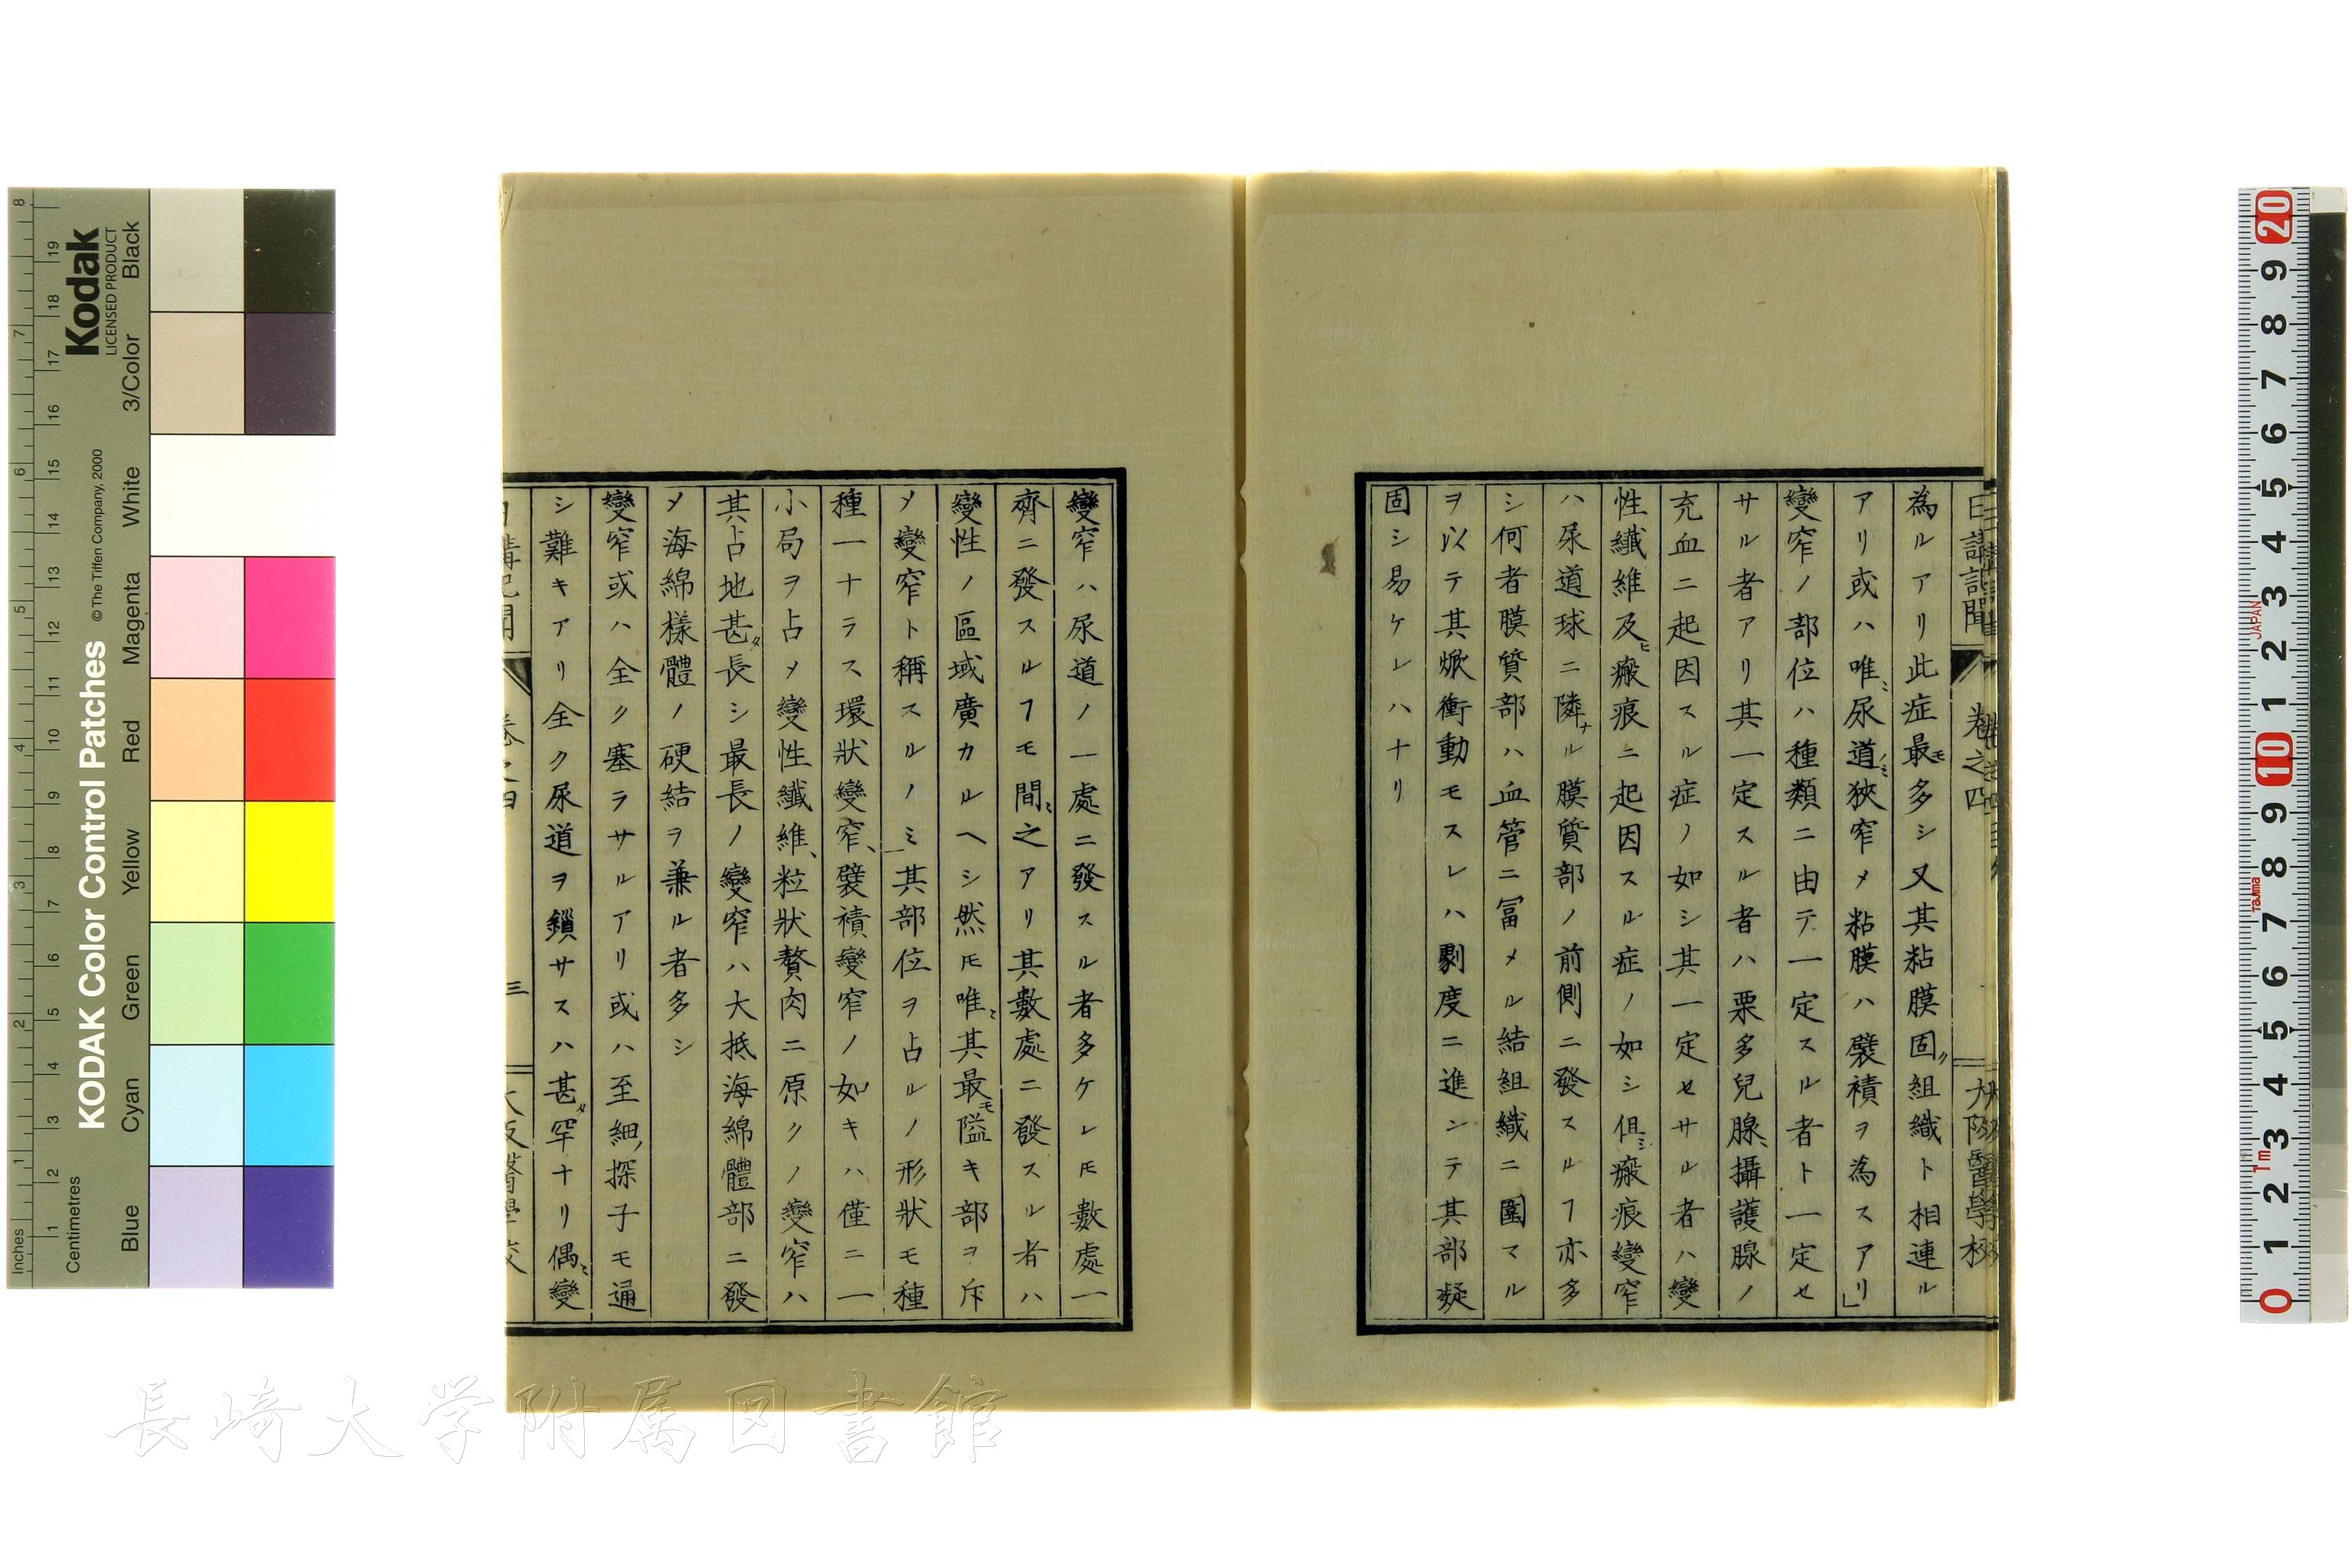 日講記聞 卷之四 大阪醫學校
為ルアリ此症最モ多シ又其粘膜固ク組織ト相連ル
アリ或ハ唯ミ尿道ノミ狹窄メ粘膜ハ襞積ヲ為スアリ」
變窄ノ部位ハ種類ニ由テ一定スル者ト一定セ
サル者アリ其一定スル者ハ栗多兒腺、攝護腺ノ
充血ニ起因スル症ノ如シ其一定セサル者ハ變
性纖維及ヒ瘢痕ニ起因スル症ノ如シ但シ瘢痕變窄
ハ尿道球ニ隣ナル膜質部ノ前側ニ發スルヿ亦多
シ何者膜質部ハ血管ニ冨メル結組織ニ圍マル
ヲ以テ其焮衝動モスレハ劇度ニ進ンテ其部凝
固シ易ケレハナリ
變窄ハ尿道ノ一處ニ發スル者多ケレ𪜈數處一
齊ニ發スルヿモ間ミ之アリ其數處ニ發スル者ハ
變性ノ區域廣カルヘシ然𪜈唯ミ其最モ隘キ部ヲ斥
メ變窄ト稱スルノミ其部位ヲ占ルノ形狀モ種
種一ナラス環狀變窄、襞積變窄ノ如キハ僅ニ一
小局ヲ占メ變性纖維、粒狀贅肉ニ原クノ變窄ハ
其占地甚タ長シ最長ノ變窄ハ大抵海綿體部ニ發
メ海綿樣體ノ硬結ヲ兼ル者多シ
變窄或ハ全ク塞ラサルアリ或ハ至細ノ探子モ通
シ難キアリ全ク尿道ヲ鎖サスハ甚タ罕ナリ偶ミ變
日講記聞 卷之四 三 大阪醫學校
Kodak
LICENSED PRODUCT
KODAK Color Control Patches
© The Tiffen Company, 2000
Inches
Centimetres
Blue
Cyan
Green
Yellow
Red
Magenta
White
3/Color
Black
JAPAN
Tajima
長崎大学附属図書館